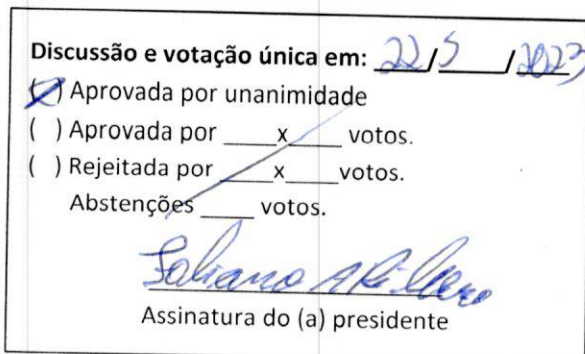 Discussão e votação única em: 22/5/2023
(X) Aprovada por unanimidade
( ) Aprovada por ____x____ votos.
( ) Rejeitada por ____x____votos.
Abstenções ____ votos.
Fabiano A Ribeiro
Assinatura do (a) presidente